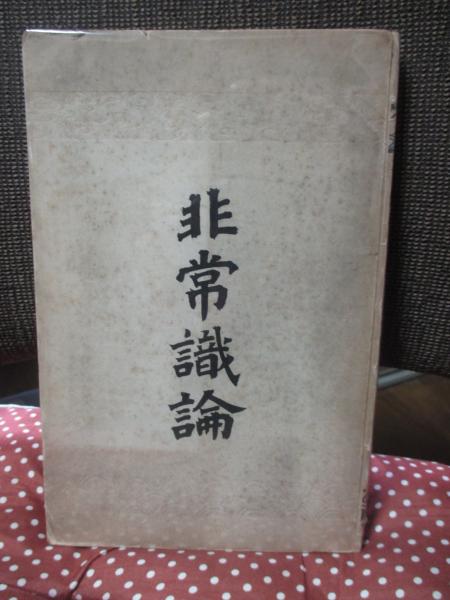 非常識論